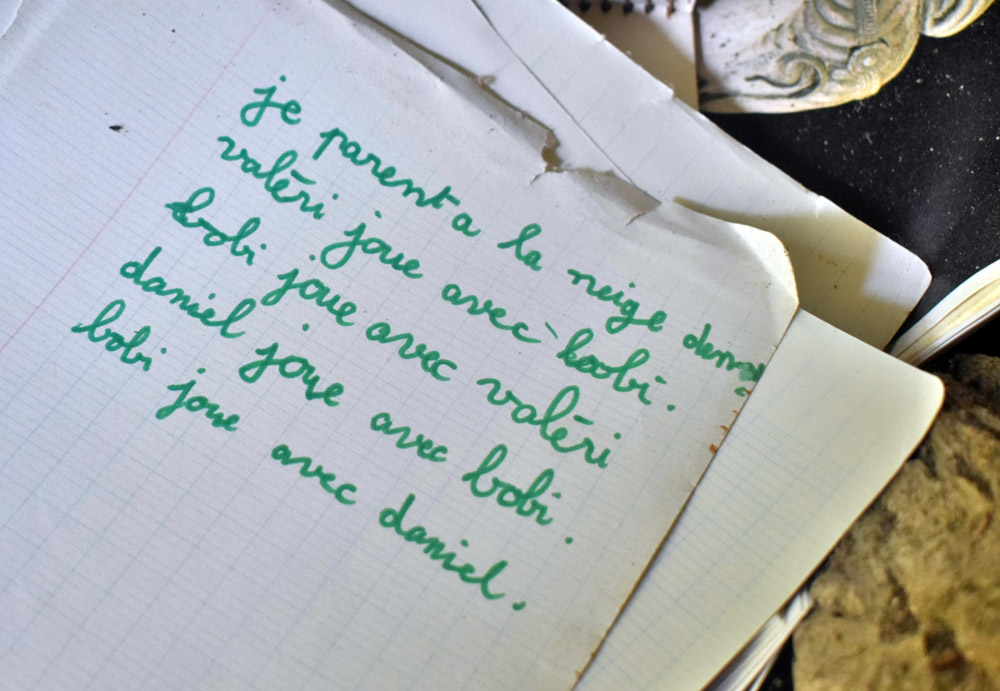 je parent a la neige
valēri joue avec bobi.
bobi joue avec valēri
daniel joue avec bobi.
bobi joue avec daniel.